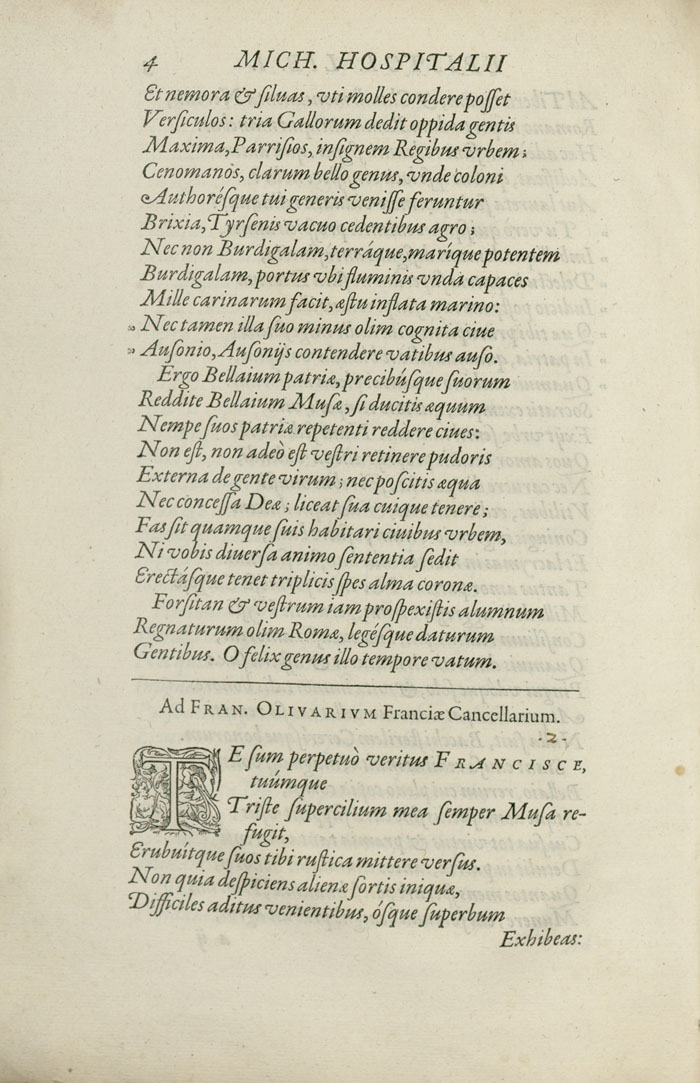 4 MICH. HOSPITALII
Et nemora & ſiluas, vti molles condere poſſet
Verſiculos: tria Gallorum dedit oppida gentis
Maxima, Parriſios, inſignem Regibus vrbem;
Cenomanos, clarum bello genus, vnde coloni
Authoréſque tui generis veniſſe feruntur
Brixia, Tyrſenis vacuo cedentibus agro;
Nec non Burdigalam, terráque, maríque potentem
Burdigalam, portus vbi fluminis vnda capaces
Mille carinarum facit, æſtu inflata marino:
" Nec tamen illa ſuo minus olim cognita ciue
" Auſonio, Auſonijs contendere vatibus auſo.
Ergo Bellaium patriæ, precibúſque ſuorum
Reddite Bellaium Muſæ, ſi ducitis æquum
Nempe ſuos patriæ repetenti reddere ciues:
Non eſt, non adeò eſt veſtri retinere pudoris
Externa de gente virum; nec poſcitis æqua
Nec conceſſa Deæ; liceat ſua cuique tenere;
Fas ſit quamque ſuis habitari ciuibus vrbem,
Ni vobis diuerſa animo ſententia ſedit
Erectáſque tenet triplicis ſpes alma coronæ.
Forſitan & veſtrum iam proſpexiſtis alumnum
Regnaturum olim Romæ, legéſque daturum
Gentibus. O felix genus illo tempore vatum.
Ad FRAN. OLIVARIVM Franciæ Cancellarium.
.2.
TE ſum perpetuò veritus FRANCISCE,
tuúmque
Triſte ſupercilium mea ſemper Muſa re-
fugit,
Erubuítque ſuos tibi ruſtica mittere verſus.
Non quia deſpiciens alienæ ſortis iniquæ,
Difficiles aditus venientibus, óſque ſuperbum
Exhibeas: